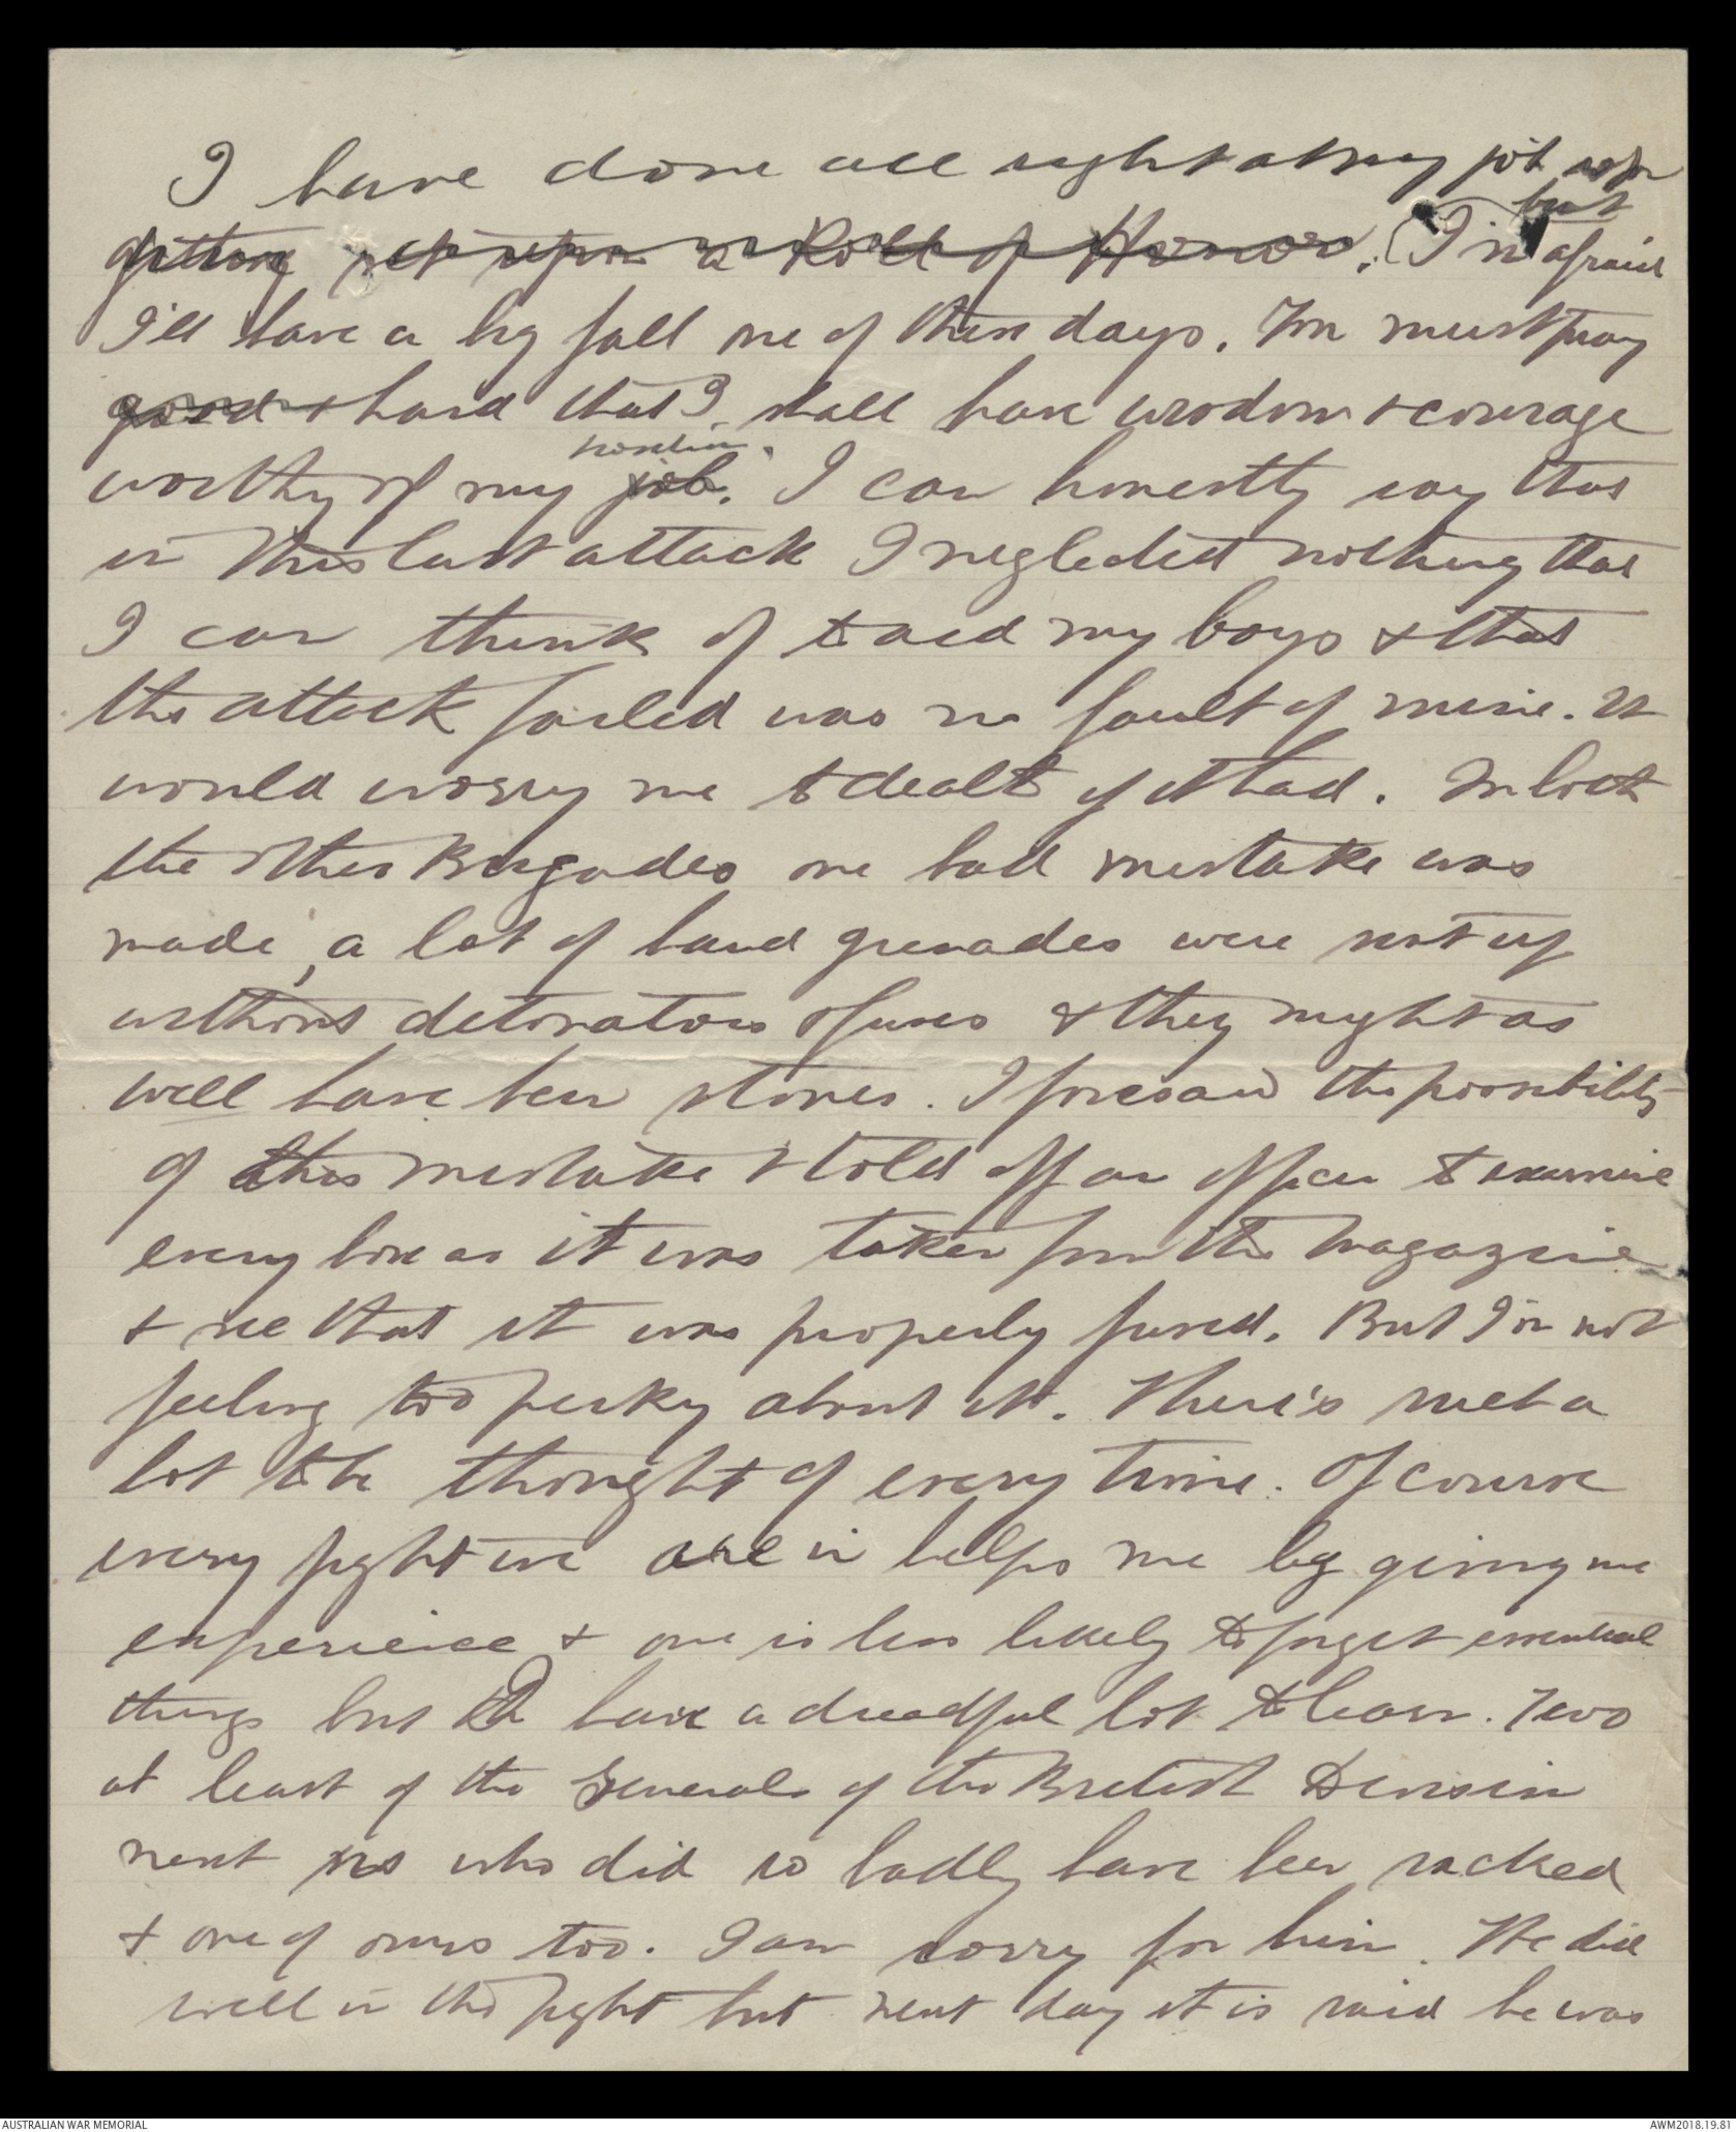 I have done all right at my job so far
but
getting set upon a Roll of Honor. (I'm afraid
I'll have a big fall one of these days. You must pray
good & hard that I shall have wisdom & courage
position.
worthy of my job. I can honestly say that
in this last attack I neglected nothing that
I can think of to aid my boys & that
the attack failed was no fault of mine. It
would worry me to death if it had. In both
the other Brigades one bad mistake was
made, a lot of hand grenades were sent up
without detonators or fuses & they might as
well have been stones. I foresaw the possibility
of this mistake & told off an officer to examine
every box as it was taken from the magazine
& see that it was properly fused. But I'm not
feeling too perky about it. There's such a
lot to be thought of every time. Of course
every fight we are in helps me by giving me
experience & one is less likely to forget essential
things but I have a dreadful lot to learn. Two
at least of the Generals of the British Division
next us who did so badly have been sacked
& one of ours too. I am sorry for him. He did
well in the fight but next day it is said he was
AUSTRALIAN WAR MEMORIAL
AWM2018.19.81